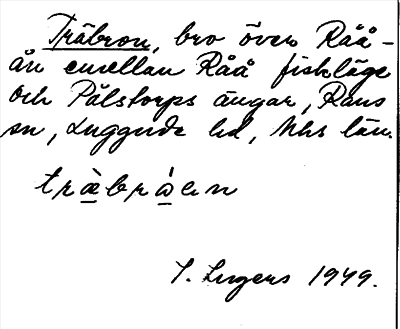 Träbron, bro över Råå-
ån emellan Råå fiskläge
och Pålstorps ängar, Raus
sn, Luggude hd, Mhs län.
træ̀brὼen
I. Ingers 1949.